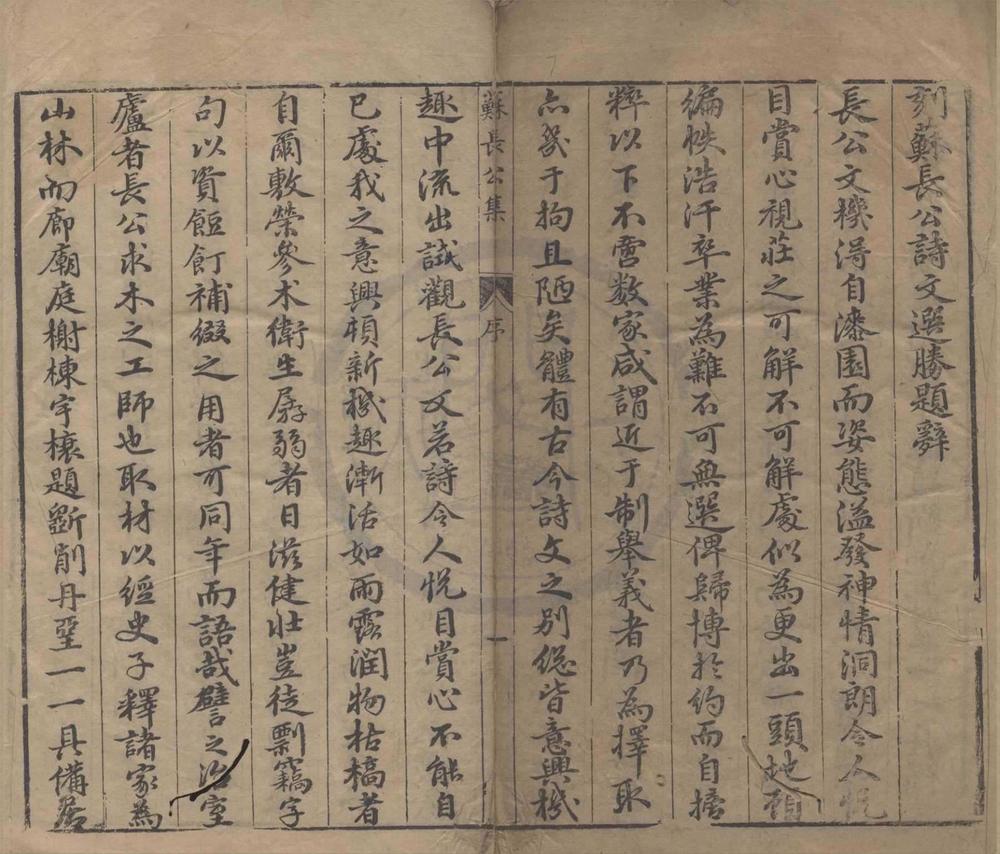 刻蘇長公詩文選勝題辭
長公文機得自漆園而姿態溢發神情洞朗令人悅
目賞心視莊之可解不可解處似為更出一頭地顧
編帙浩汗卒業為難不可無選俾歸博於約而自搚
粹以下不啻数家咸謂近于制舉義者乃為擇取
亦幾于拘且陋矣體有古今詩文之别總皆意興機
蘇長公集 序 一
趣中流出試觀長公文若詩令人悅目賞心不能自
已處我之意興頓新機趣漸活如雨露潤物枯槁者
自爾敷榮參术衛生孱弱者日滋健壯豈徒剽竊字
句以資餖飣補綴之用者可同年而語哉譬之治室
廬者長公求木之工師也取材以經史子釋諸家為
山林而廊廟庭榭棟宇榱題斵削丹堊一一具備居